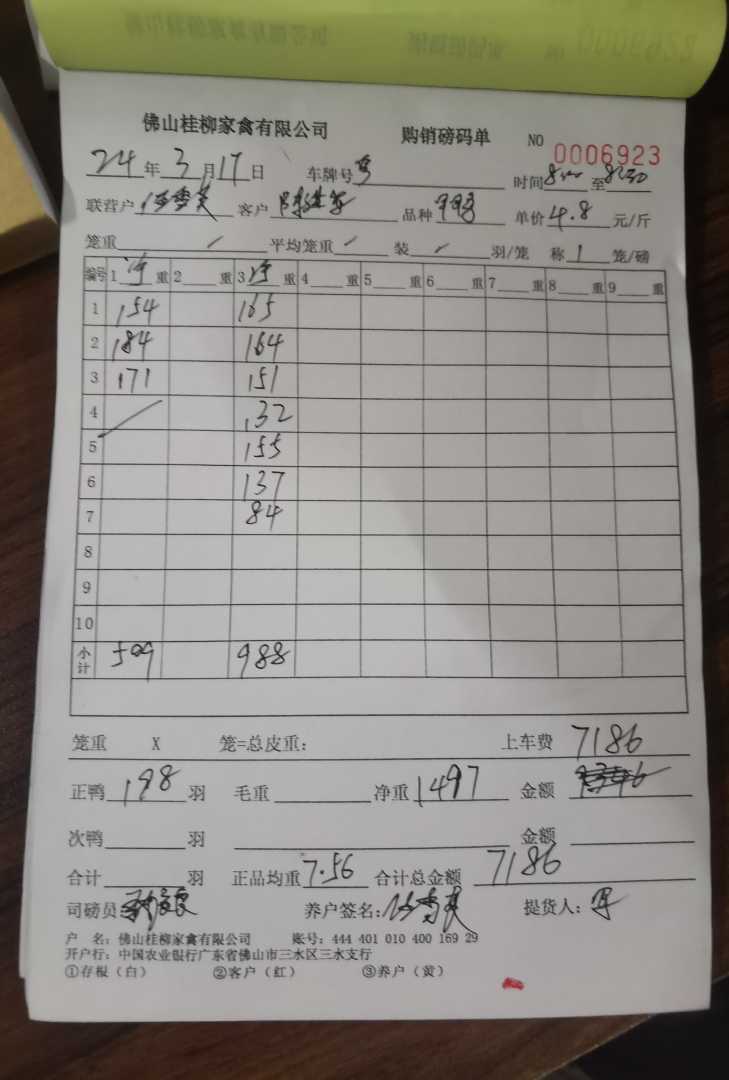 佛山桂柳家禽有限公司 购销磅码单 NO 0006923
24 年 3 月 17 日 车牌号 时间 8:00 至 8:30
联营户 客户 品种 单价 4.8 元/斤
笼重 / 平均笼重 / 装 / 羽/笼 称 1 笼/磅
编号 1 净 重 2 重 3 净 重 4 重 5 重 6 重 7 重 8 重 9 重
1 154 165
2 184 164
3 171 151
4 132
5 155
6 137
7 84
8
9
10
小计 509 988
笼重 X 笼=总皮重: 上车费 7186
正鸭 198 羽 毛重 净重 1497 金额
次鸭 羽 金额
合计 羽 正品均重 7.56 合计总金额 7186
司磅员: 养户签名: 提货人:
户 名: 佛山桂柳家禽有限公司 账号: 444 401 010 400 169 29
开户行: 中国农业银行广东省佛山市三水区三水支行
①存根（白） ②客户（红） ③养户（黄）